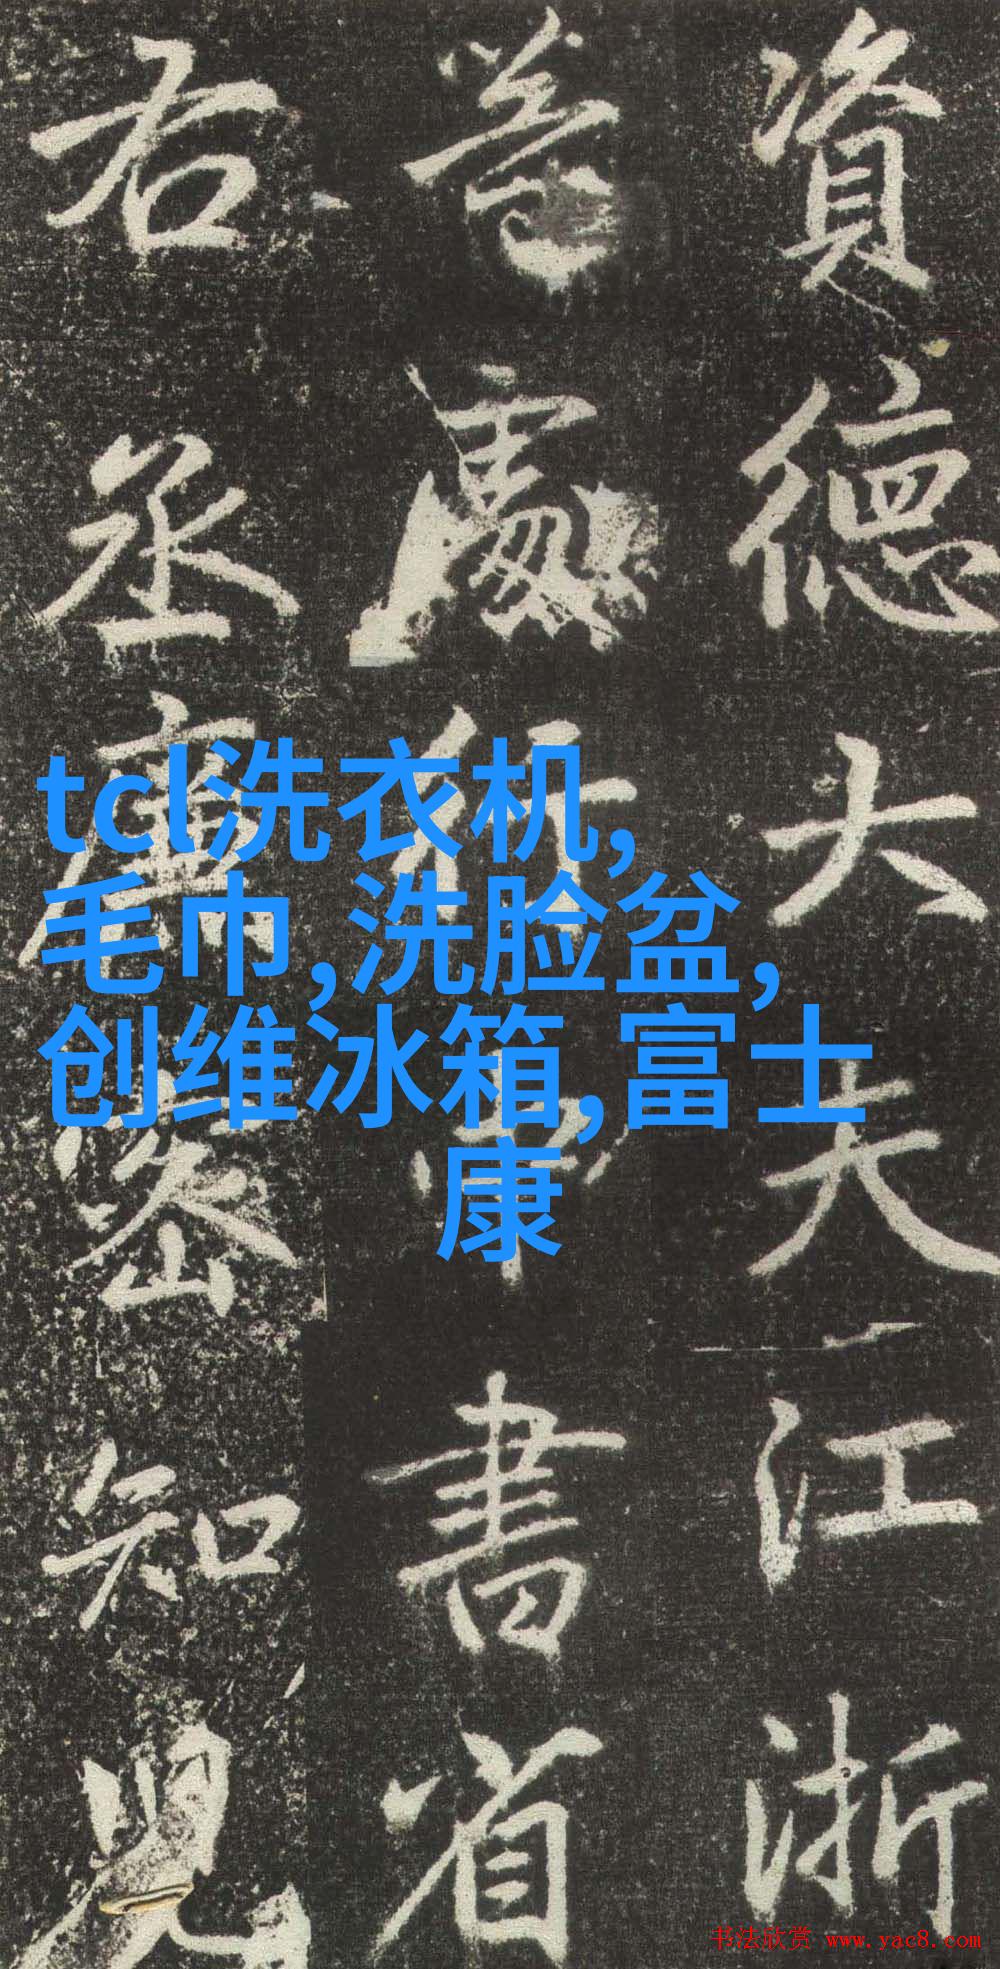 資德大夫江浙
等處行中書省
右丞廉密知兒
tcl洗衣机,
毛巾,洗脸盆,
创维冰箱,富士
康
书法欣赏 www.yac8.com